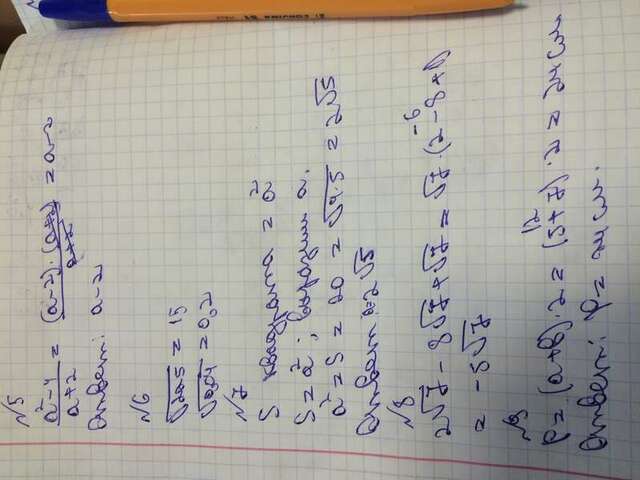 №5
a²-4/a+2 = (a-2)·(a+2)/a+2 = a-2
Ответ: a-2
№6
√225 = 15
√0,04 = 0,2
№7
S квадрата = a²
S = a² ; выразим a.
a² = S = 20 = √4·5 = 2√5
Ответ: a=2√5
№8
-6
2√7 - 8√7 + √7 = √7 · (2-8+1)
= -5√7
№9
12
P = (a+b)·2 = (5+7)·2 = 24 см
Ответ: P = 24 см.